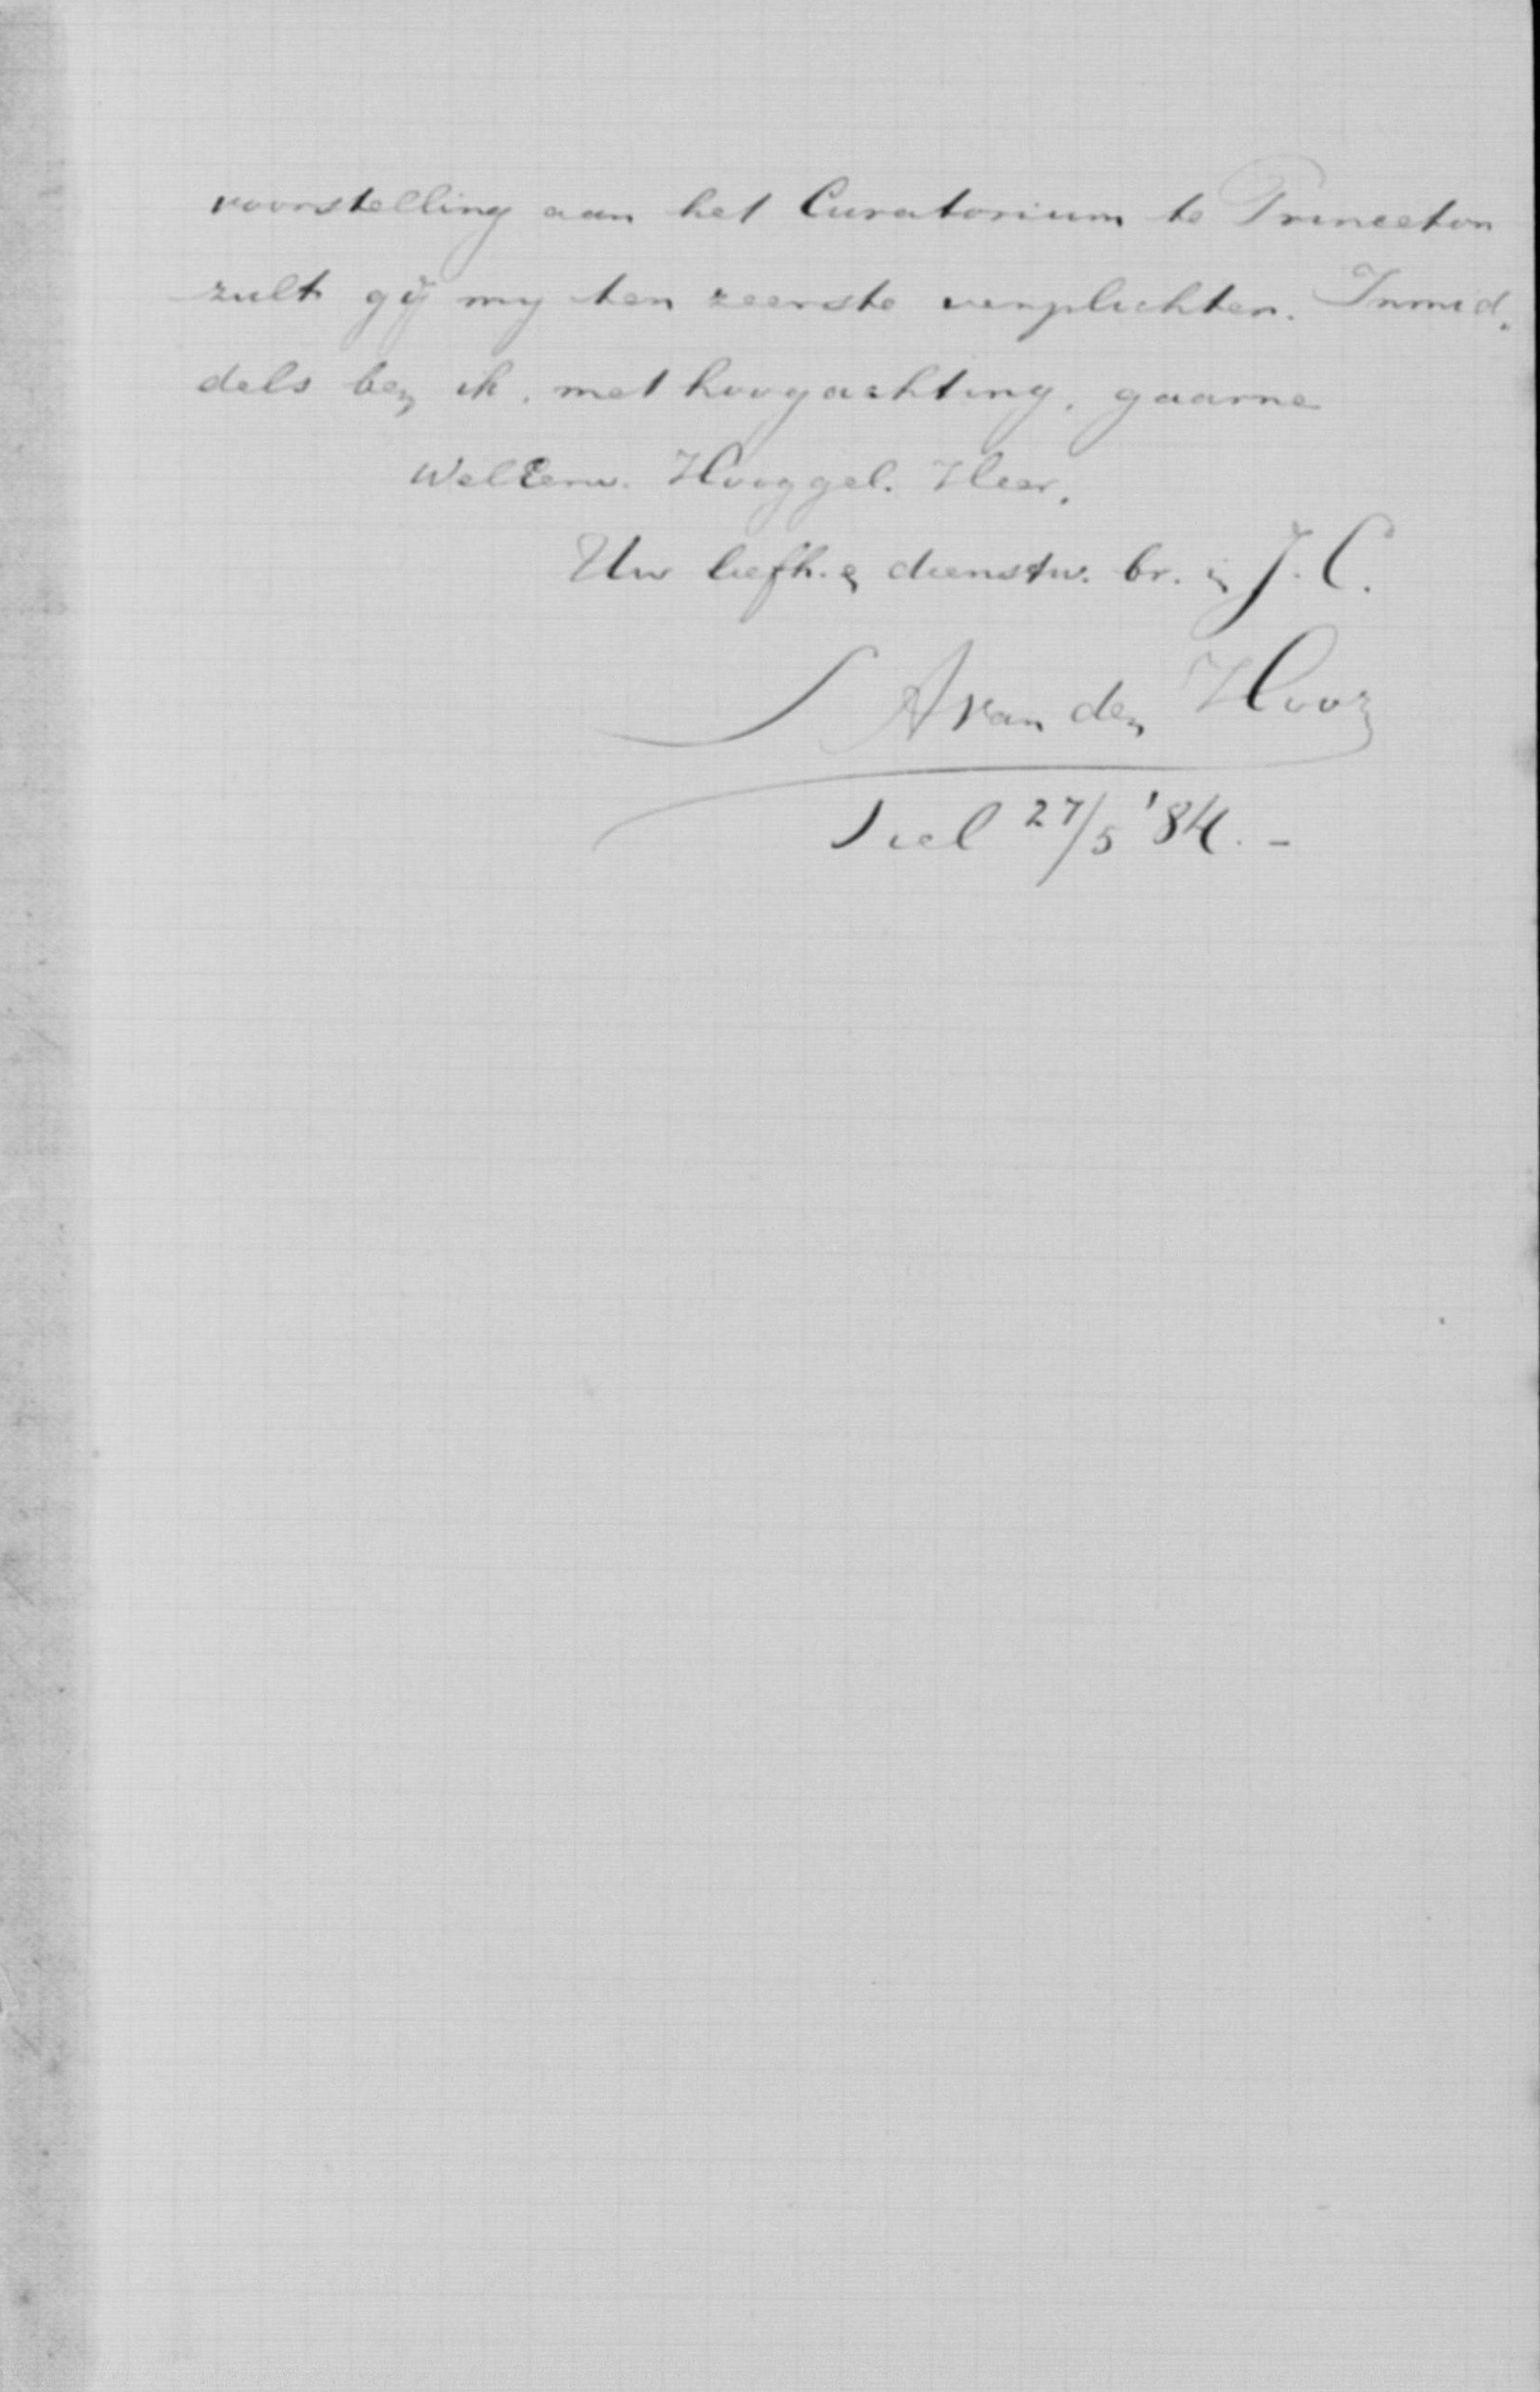 voorstelling aan het Curatorium te Princeton
zult gij my ten zeerste verplichten. Inmid„
dels ben ik, met hoogachting, gaarne
WelEerw. Hooggel. Heer,
Uw liefh. en dienstw. br. in J. C.
S A van den Hoorn
Tiel 27/5 '84. –